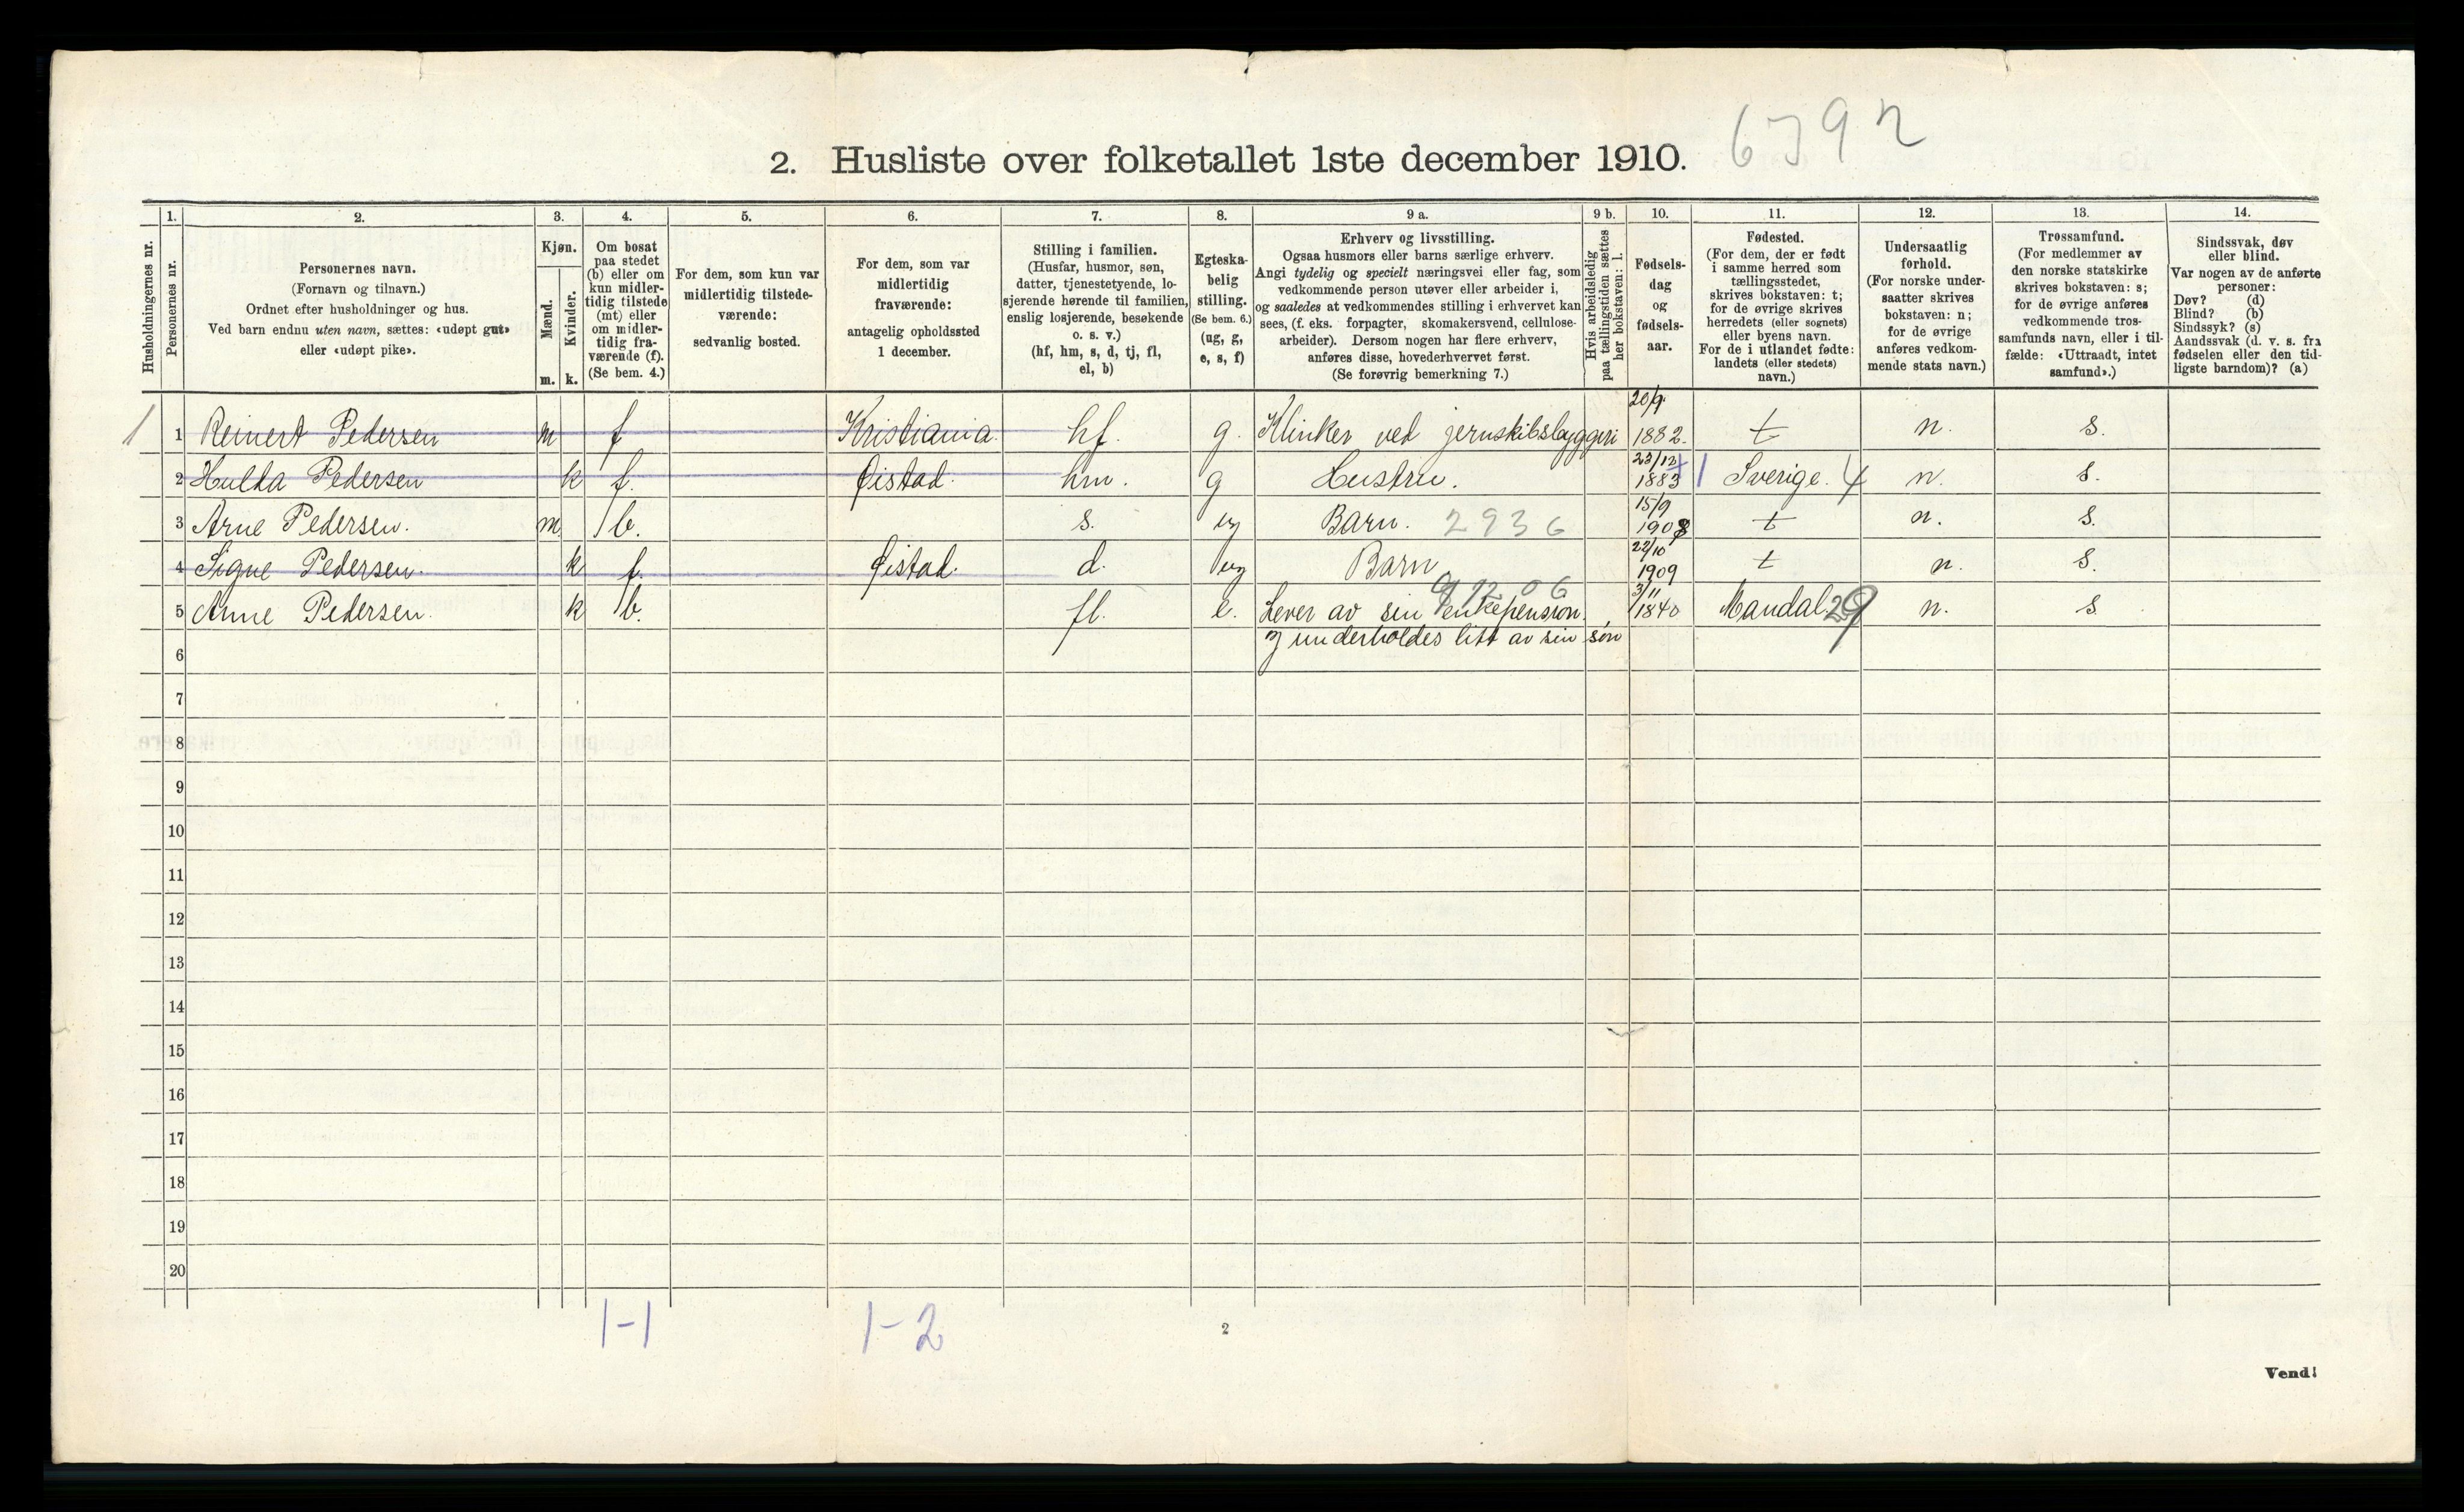 6392
2. Husliste over folketallet 1ste december 1910.
Husholdningernes nr.
1.
Personernes nr.
2.
Personernes navn.
(Fornavn og tilnavn.)
Ordnet efter husholdninger og hus.
Ved barn endnu uten navn, sættes: «udøpt gut»
eller «udøpt pike».
3.
Kjøn.
Mænd.
m.
Kvinder.
k.
4.
Om bosat
paa stedet
(b) eller om
kun midler-
tidig tilstede
(mt) eller
om midler-
tidig fra-
værende (f).
(Se bem. 4.)
5.
For dem, som kun var
midlertidig tilstede-
værende:
sedvanlig bosted.
6.
For dem, som var
midlertidig
fraværende:
antagelig opholdssted
1 december.
7.
Stilling i familien.
(Husfar, husmor, søn,
datter, tjenestetyende, lo-
sjerende hørende til familien,
enslig losjerende, besøkende
o. s. v.)
(hf, hm, s, d, tj, fl,
el, b)
8.
Egteska-
belig
stilling.
(Se bem. 6.)
(ug, g,
e, s, f)
9 a.
Erhverv og livsstilling.
Ogsaa husmors eller barns særlige erhverv.
Angi tydelig og specielt næringsvei eller fag, som
vedkommende person utøver eller arbeider i,
og saaledes at vedkommendes stilling i erhvervet kan
sees, (f. eks. forpagter, skomakersvend, cellulose-
arbeider). Dersom nogen har flere erhverv,
anføres disse, hovederhvervet først.
(Se forøvrig bemerkning 7.)
9 b.
Hvis arbeidsledig
paa tællingstiden sættes
her bokstaven: l.
10.
Fødsels-
dag
og
fødsels-
aar.
11.
Fødested.
(For dem, der er født
i samme herred som
tællingsstedet,
skrives bokstaven: t;
for de øvrige skrives
herredets (eller sognets)
eller byens navn.
For de i utlandet fødte:
landets (eller stedets)
navn.)
12.
Undersaatlig
forhold.
(For norske under-
saatter skrives
bokstaven: n;
for de øvrige
anføres vedkom-
mende stats navn.)
13.
Trossamfund.
(For medlemmer av
den norske statskirke
skrives bokstaven: s;
for de øvrige anføres
vedkommende tros-
samfunds navn, eller i til-
fælde: «Uttraadt, intet
samfund».)
14.
Sindssvak, døv
eller blind.
Var nogen av de anførte
personer:
Døv? (d)
Blind? (b)
Sindssyk? (s)
Aandssvak (d. v. s. fra
fødselen eller den tid-
ligste barndom)? (a)
1 1 Reinert Pedersen m f Kristiania. hf. g. Klinker ved jernskibsbyggeri 20/9. 1882. t n. s.
2 Hulda Pedersen k f. Øistad. hm. g Hustru. 23/12 1883 1 Sverige. 4 n. s.
3 Arne Pedersen. m 1 b. s. ug Barn. 2936 15/9 1908 t n. s.
4 Signe Pedersen. k f. Øistad. d. ug Barn 22/10 1909 t n. s.
5 Anne Pedersen. k 1 b. fl. e. Lever av sin enkepension 3/11 1840 Mandal. 29 n. s.
6 og underholdes litt av sin søn
7
8
9
10
11
12
13
14
15
16
17
18
19
20
1-1 1-2
2
Vend!